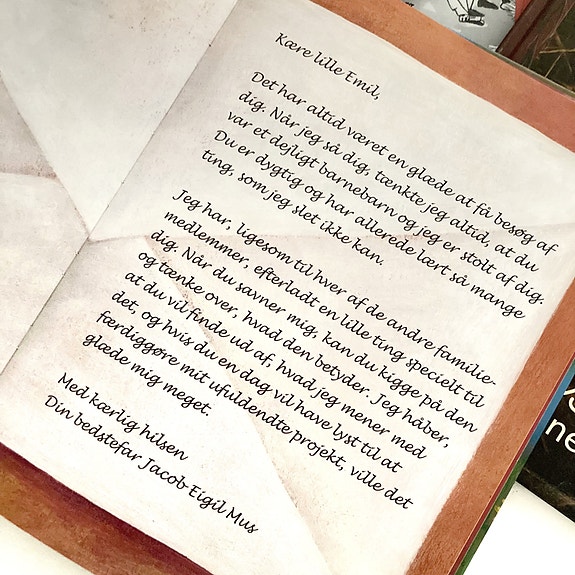 Kære lille Emil,
Det har altid været en glæde at få besøg af
dig. Når jeg så dig, tænkte jeg altid, at du
var et dejligt barnebarn og jeg er stolt af dig.
Du er dygtig og har allerede lært så mange
ting, som jeg slet ikke kan.
Jeg har, ligesom til hver af de andre familie-
medlemmer, efterladt en lille ting specielt til
dig. Når du savner mig, kan du kigge på den
og tænke over, hvad den betyder. Jeg håber,
at du vil finde ud af, hvad jeg mener med
det, og hvis du en dag vil have lyst til at
færdiggøre mit ufuldendte projekt, ville det
glæde mig meget.
Med kærlig hilsen
Din bedstefar Jacob Eigil Mus